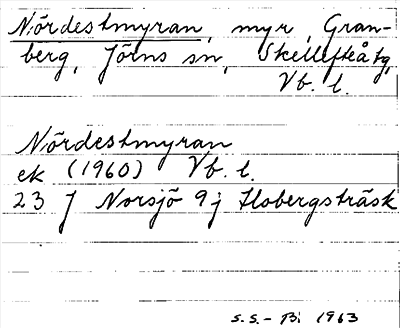 Nördestmyran, myr, Gran-
berg, Jörns sn, Skellefteå tg,
Vb. l.
Nördestmyran
ek (1960) Vb. l.
23 J Norsjö 9j Flobergsträsk
S.S. - Bi 1963